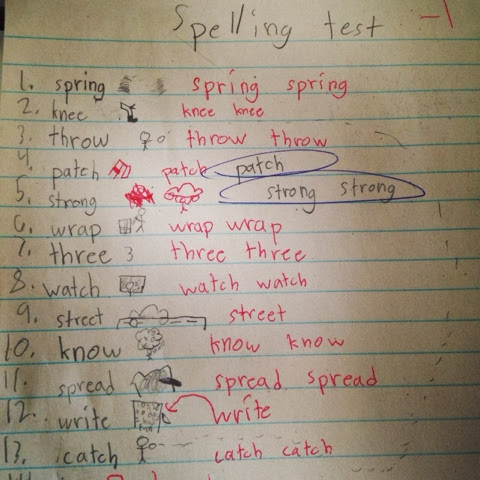 Spelling test -1
1. spring spring spring
2. knee knee knee
3. throw throw throw
4. patch patch patch
5. strong strong strong
6. wrap wrap wrap
7. three 3 three three
8. watch watch watch
9. street street
10. know know know
11. spread spread spread
12. write write
13. catch catch catch